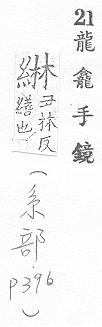 21 龍龕手鏡
綝 丑林反
繕也
(系部 p396)